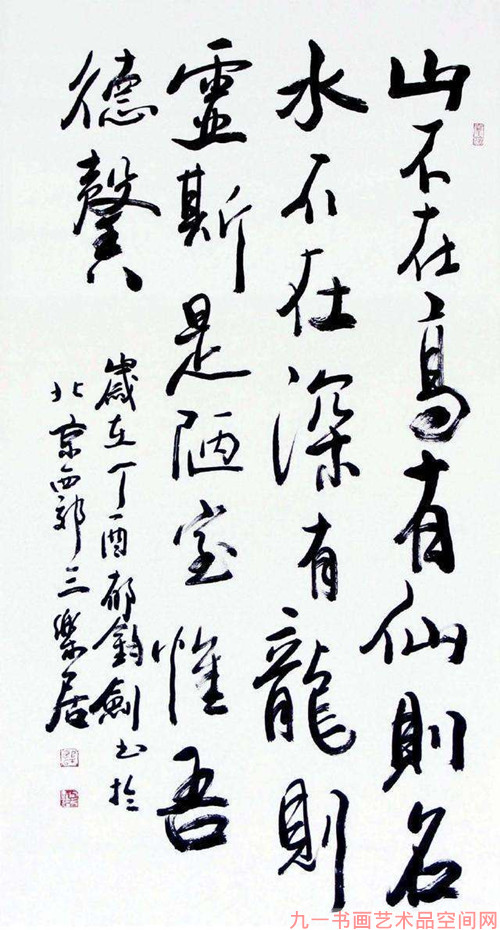 山不在高有仙則名
水不在深有龍則
靈斯是陋室惟吾
德馨
歲在丁酉郁鈞劍书於
北京西郊三樂居
九一书画艺术品空间网